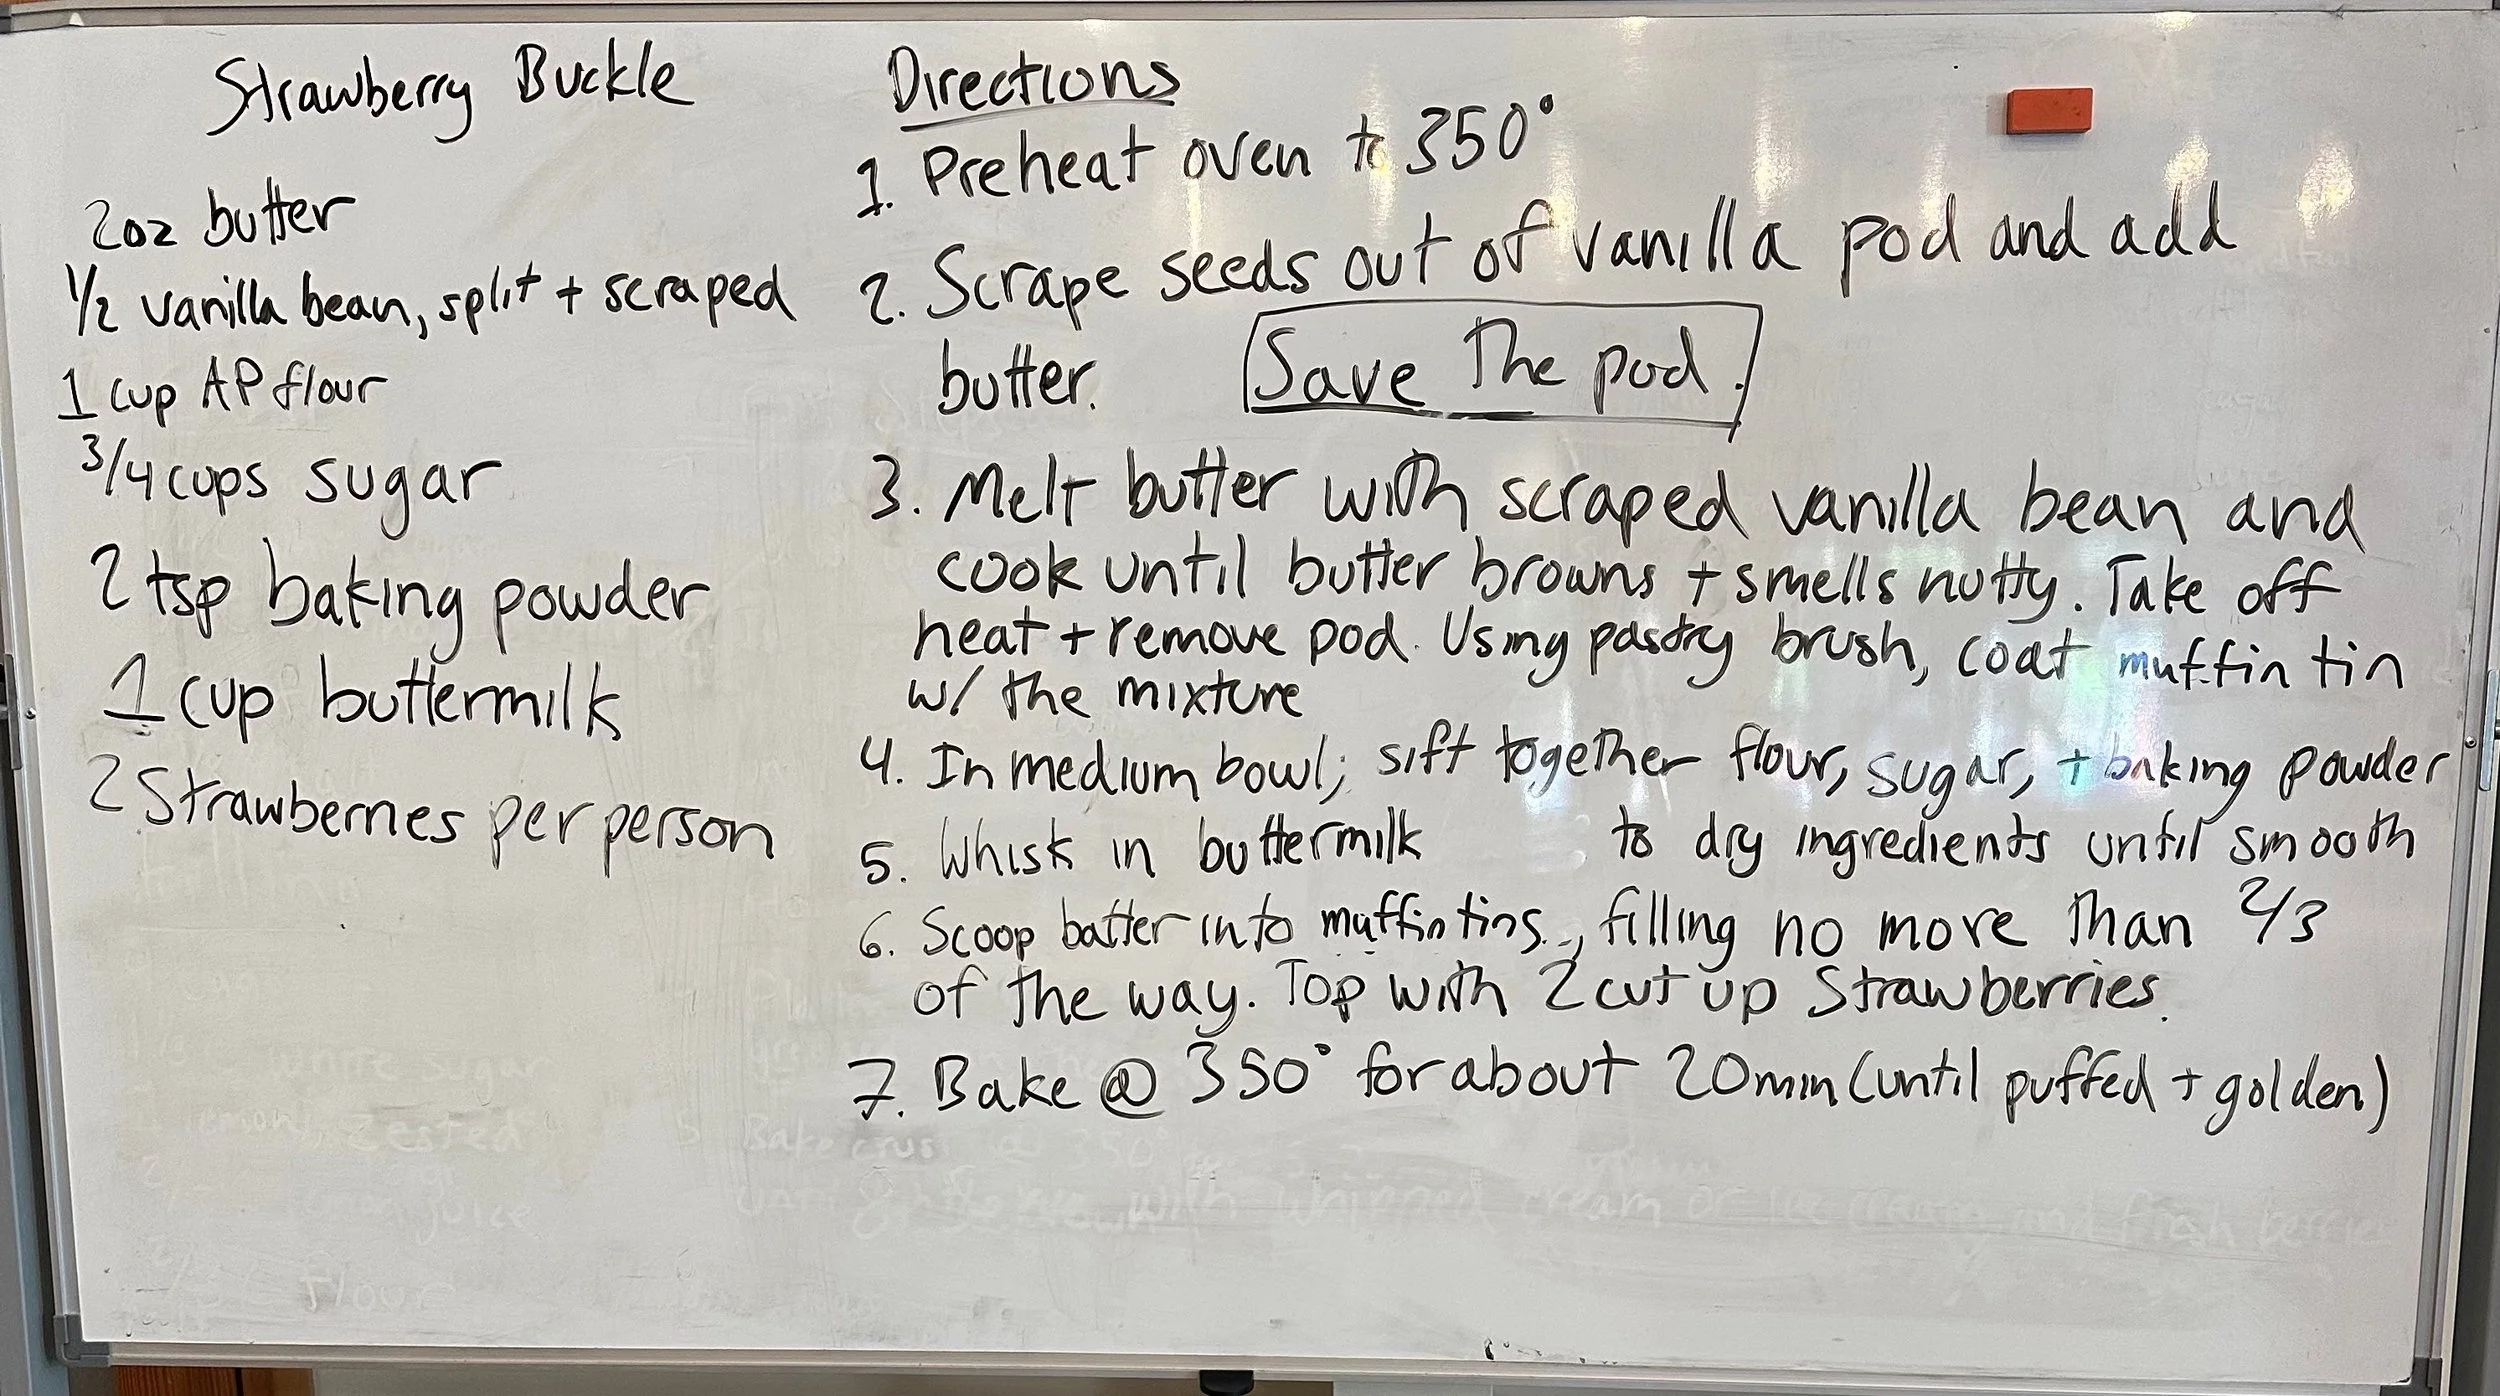 Strawberry Buckle
2oz butter
1/2 vanilla bean, split + scraped
1 cup AP flour
3/4 cups sugar
2 tsp baking powder
1 cup buttermilk
2 Strawberries per person
Directions
1. Preheat oven to 350°
2. Scrape seeds out of vanilla pod and add
butter. Save the pod.
3. Melt butter with scraped vanilla bean and
cook until butter browns + smells nutty. Take off
heat + remove pod. Using pastry brush, coat muffin tin
w/ the mixture
4. In medium bowl, sift together flour, sugar, + baking powder
5. Whisk in buttermilk to dry ingredients until smooth
6. Scoop batter into muffin tins, filling no more than 2/3
of the way. Top with 2 cut up Strawberries.
7. Bake @ 350° for about 20min (until puffed + golden)
white sugar
zested
juice
flour
Bake @ 350°
with whipped cream or ice cream and fresh berries